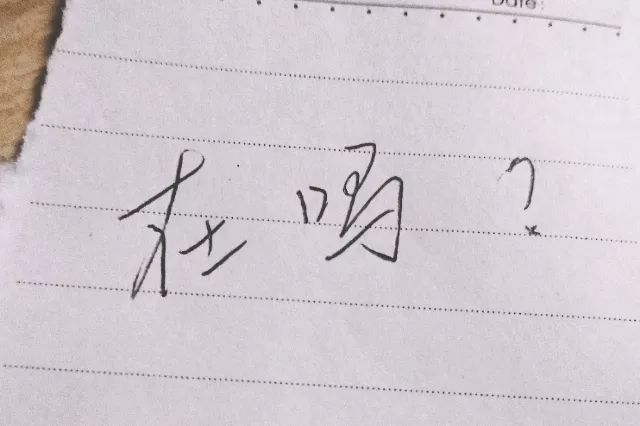 Date:
在吗?